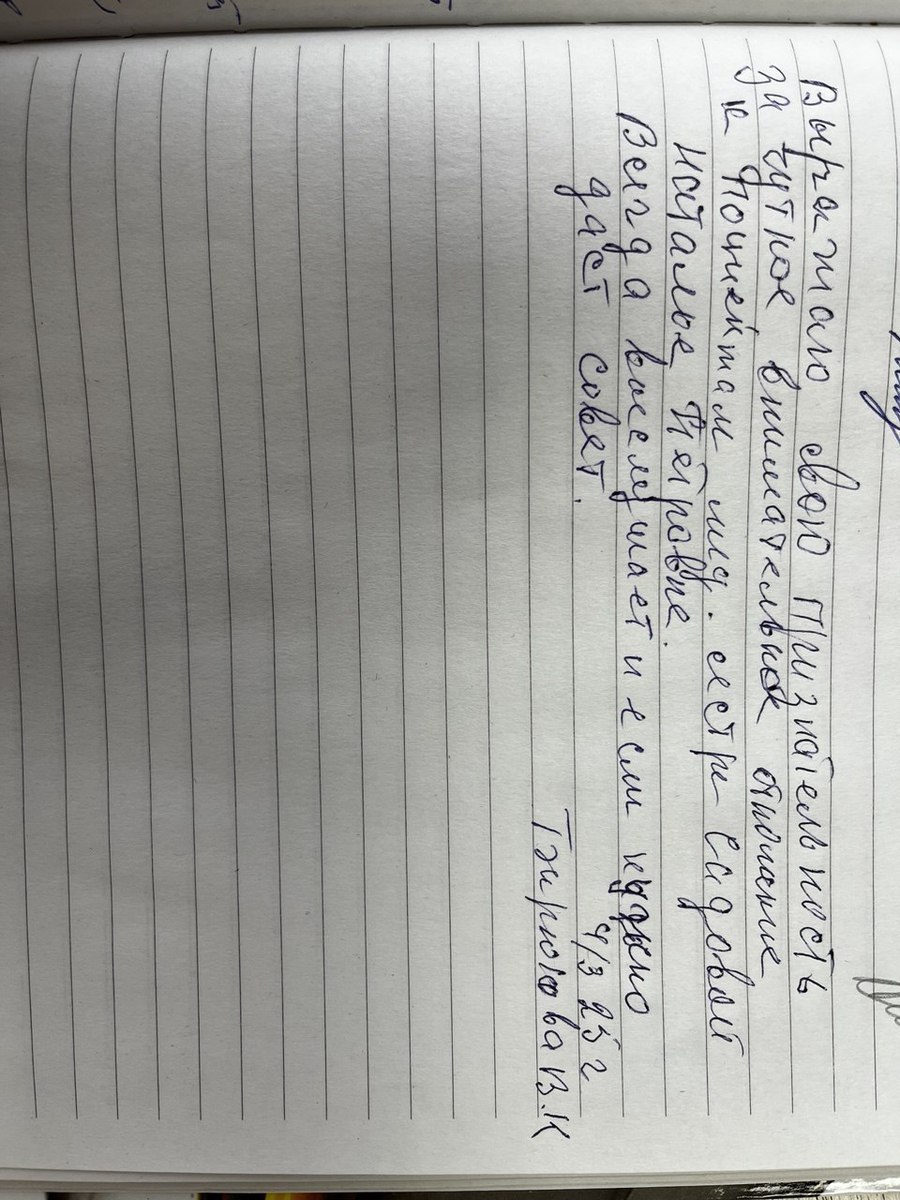 Выражаю свою признательность
за чуткое внимательное отношение
к пациентам мед. сестре Садовой
Наталье Петровне.
Всегда выслушает и если нужно
даст совет.
4/3 25 г
В.К